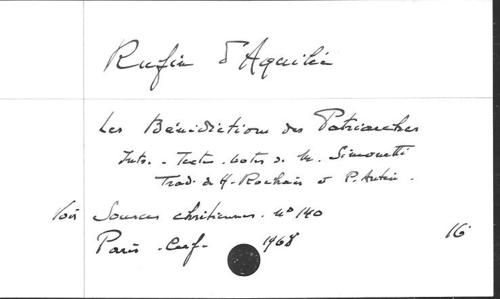 Rufin d'Aquilée
Les Bénédictions des Patriarches
Intr. - Texte - Notes de M. Simonetti
Trad. de H. Rochais et P. Antin.
Voir Sources chrétiennes. n° 140
Paris - Cerf - 1968
16